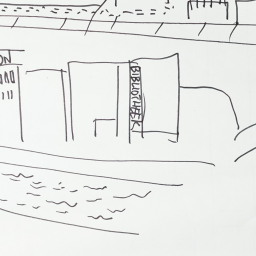 ON
BIBLIOTHEEK